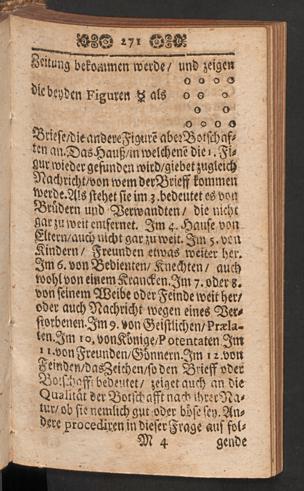 271
Zeitung bekommen werde/ und zeigen
die beyden Figuren ☿ als
Briefe/die andere Figurẽ aber Botschaf-
ten an. Das Hauß/in welchenẽ die 1. Fi-
gur wieder gefunden wird/giebet zugleich
Nachricht/von wem der Brieff kommen
werde. Als stehet sie im 3. bedeutet es von
Brüdern und Verwandten/ die nicht
gar zu weit entfernet. Im 4. Hause von
Eltern/auch nicht gar zu weit. Im 5. von
Kindern/ Freunden etwas weiter her.
Im 6. von Bedienten/ Knechten/ auch
wohl von einem Krancken. Im 7. oder 8.
von seinem Weibe oder Feinde weit her/
oder auch Nachricht wegen eines Ver-
storbenen. Im 9. von Geistlichen/ Præla-
ten. Im 10. von Könige/ Potentaten Im
11. von Freunden/ Gönnern. Im 12. von
Feinden/das Zeichen/so den Brieff oder
Botschafft bedeutet/ zeiget auch an die
Qualität der Botschafft nach ihrer Na-
tur/ ob sie nemlich gut oder böse sey. An-
dere procediren in dieser Frage auf fol-
M 4 gende